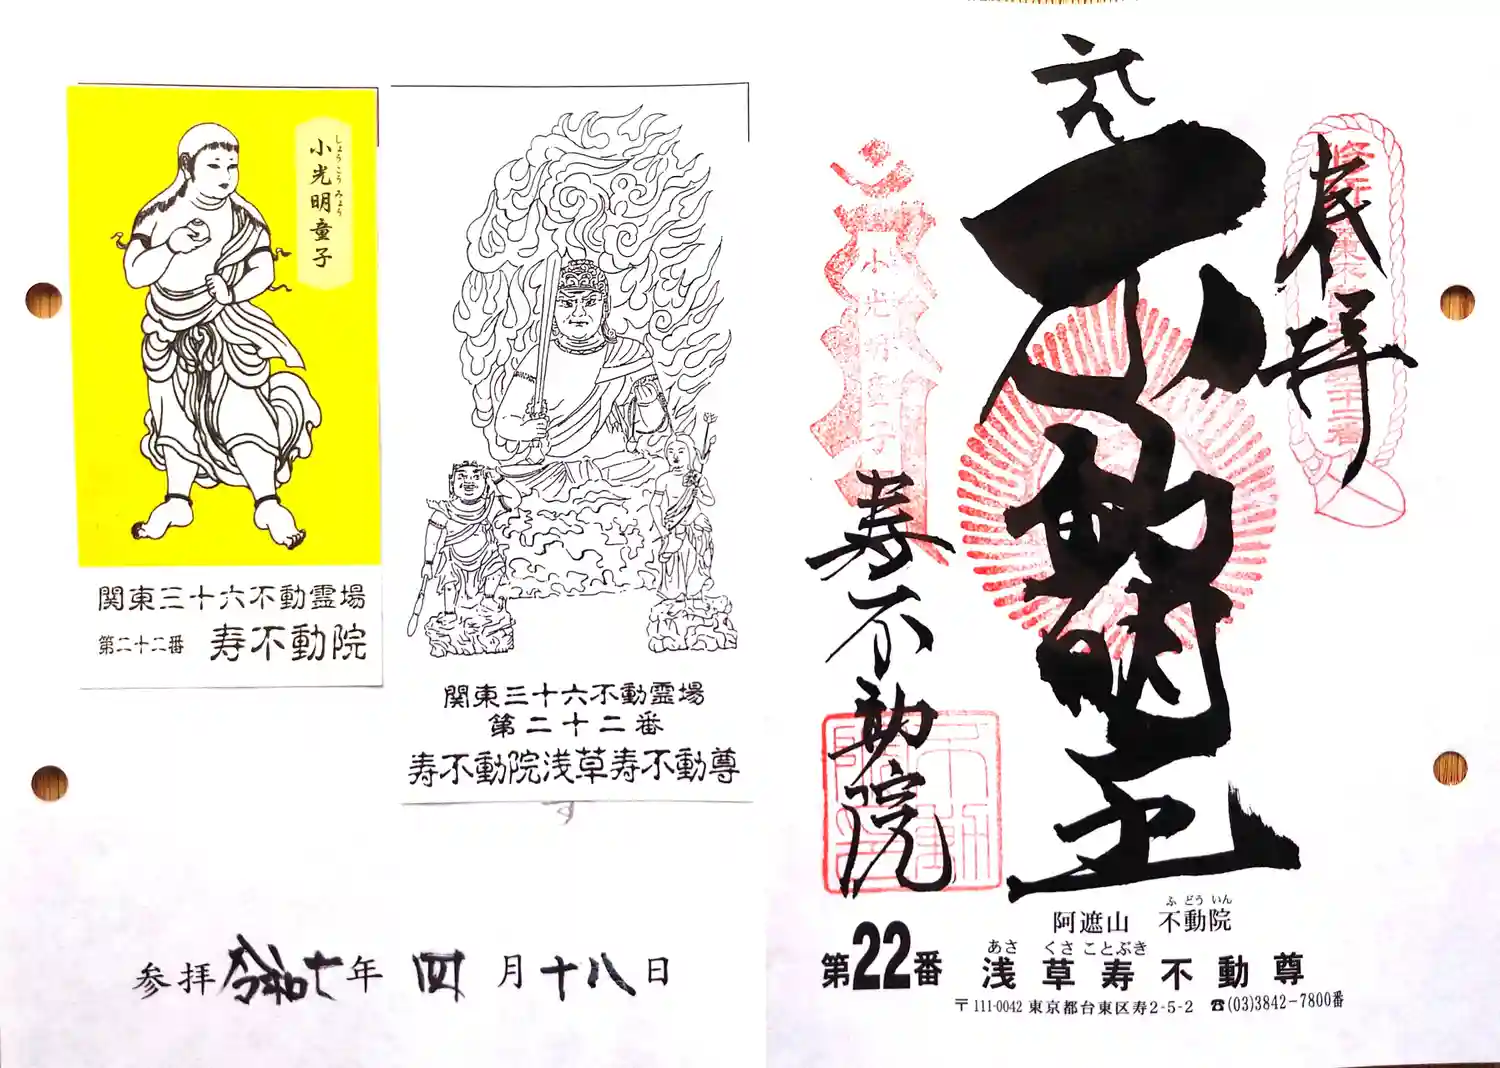 しょうこうみょう
小光明童子
関東三十六不動霊場
第二十二番 寿不動院
関東三十六不動霊場
第二十二番
寿不動院浅草寿不動尊
参拝令和七年四月十八日
奉拝
不動明王
小光明童子
寿不動院
阿遮山 不動院
ふどういん
第22番 浅草寿不動尊
あさくさことぶき
〒111-0042 東京都台東区寿2-5-2 ☎(03)3842-7800番